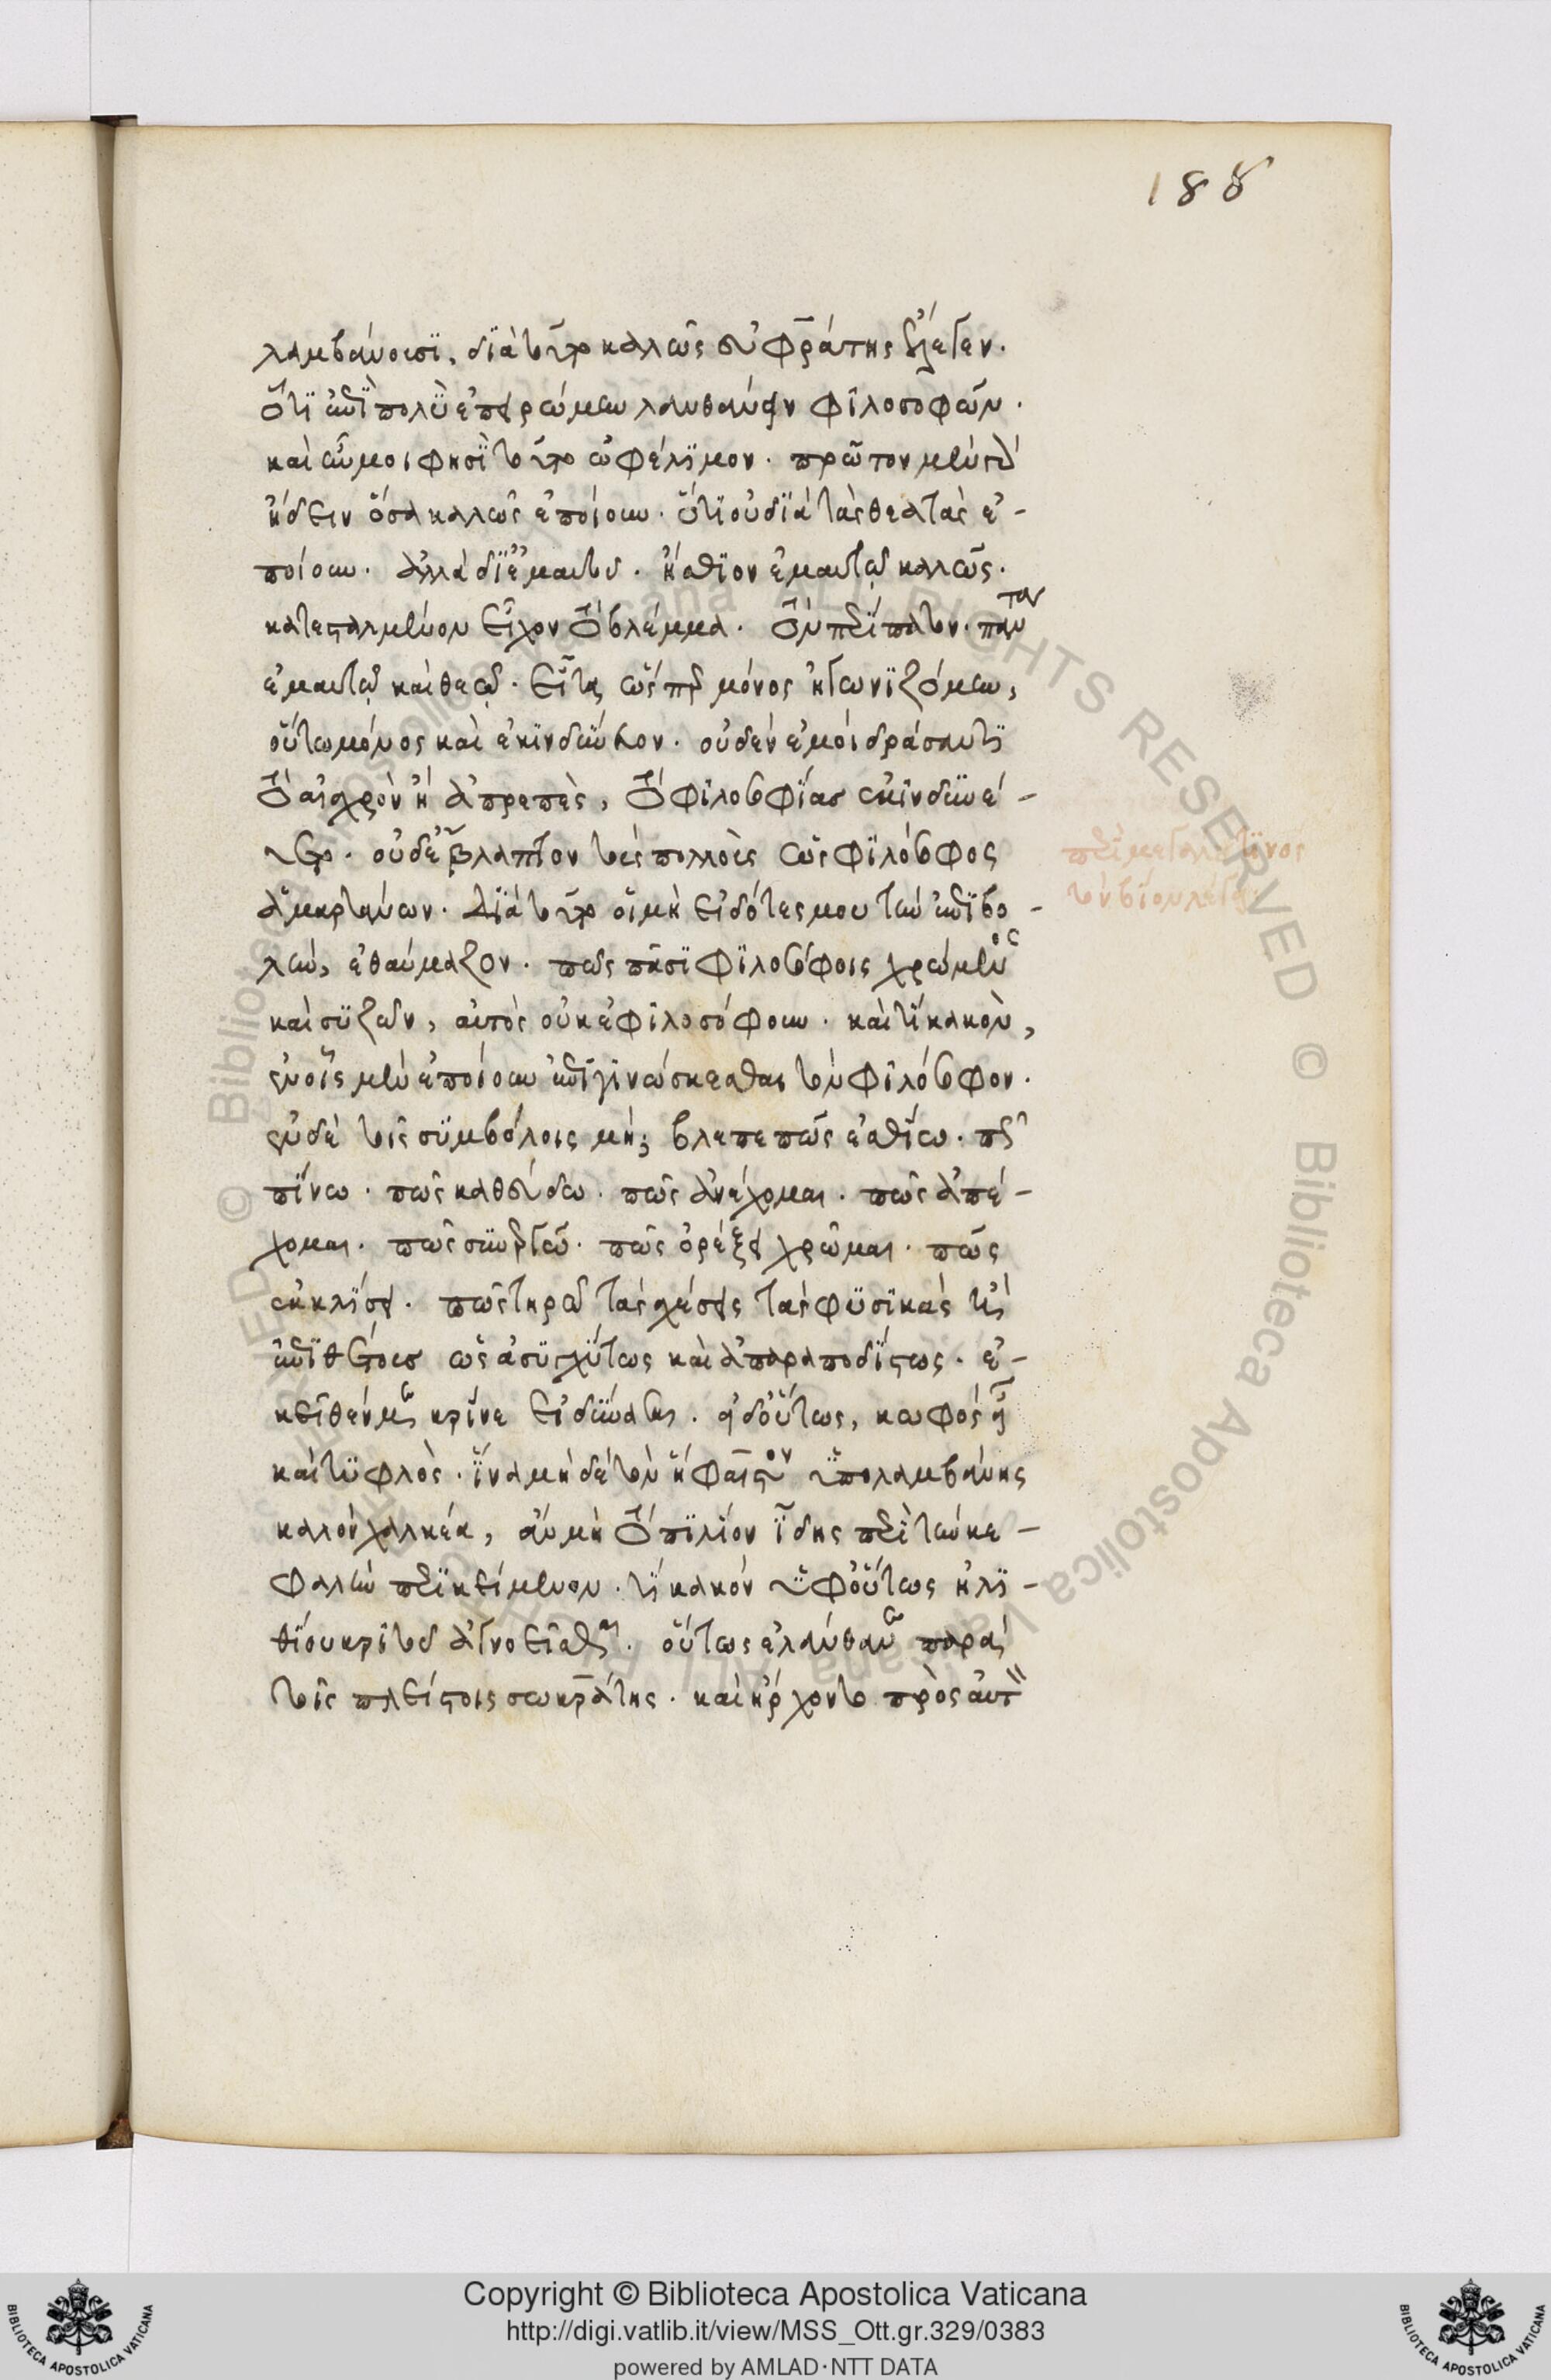 188
λαμβάνουσϊ, δϊὰ τοῦτο καλῶς εὐφράτης ἔλεγεν.
ὅτϊ ἐπϊπολὺ ἐπειρώμην λανθάνειν φϊλοσοφῶν.
καὶ ἦν μοι φησϊ τοῦτο ὠφέλϊμον. πρῶτον μὲν γὰρ
ἤδειν ὅσα καλῶς ἐποίουν. ὅτϊ οὐ δϊὰ τὰς θεατὰς ἐ-
ποίουν. ἀλλὰ δϊ' ἐμαυτόν. ἤσθϊον ἐμαυτῷ καλῶς.
κατεσταλμένον εἶχον τὸ βλέμμα. τὸν περίπατον. πάντα
ἐμαυτῷ καὶ θεῷ. εἶτα ὥσπερ μόνος ἠγωνϊζόμην,
οὕτω μόνος καὶ ἐκϊνδύνευον. οὐδὲν ἐμοὶ δράσαντϊ
τὸ αἰσχρὸν ἢ ἀπρεπὲς, τὸ φϊλοσοφϊας ἐκϊνδυνεύ-
ετο. οὐδ' ἔβλαπτον τοὺς πολλοὺς ὡς φϊλόσοφος
ἁμαρτάνων. Δϊὰ τοῦτο οἱ μὴ εἰδότες μου τὴν ἐπϊβο-
λὴν, ἐθαύμαζον. πῶς πᾶσϊ φϊλοσόφοις χρώμενος
καὶ συζῶν, αὐτὸς οὐκ ἐφϊλοσόφουν. καὶ τϊ κακὸν,
ἐν οἷς μὲν ἐποίουν ἐπϊγϊνώσκεσθαι τὸν φϊλόσοφον.
ἐν δὲ τοῖς συμβόλοις μή; βλεπε πῶς ἐσθίω. πῶς
πίνω. πῶς καθεύδω. πῶς ἀνέχομαι. πῶς ἀπέ-
χομαι. πῶς συνεργῶ. πῶς ὀρέξει χρῶμαι. πῶς
ἐκκλϊσει. πῶς τηρῶ τὰς σχέσεις τὰς φυσϊκὰς ἢ
ἐπϊθέτους ὡς ἀσυγχύτως καὶ ἀπαραποδϊστως. ἐ-
κεῖθέν με κρῖνε εἰ δύνασαι. εἰ δ' οὕτως, κωφὸς εἶ
καὶ τυφλὸς. ἵνα μηδὲ τὸν ἥφαιστον ὑπολαμβάνης
καλὸν χαλκέα, ἂν μὴ τὸ πϊλίον ἴδης περὶ τὴν κε-
φαλὴν περικείμενον. τϊ κακὸν ὑφ' οὕτως ἠλϊ-
θίου κρϊτοῦ ἀγνοεῖσθαι. οὕτως ἐλάνθανε παρὰ
τοῖς πλείστοις σωκράτης. καὶ ἤρχοντο πρὸς αὐτὸν
Copyright © Biblioteca Apostolica Vaticana
http://digi.vatlib.it/view/MSS_Ott.gr.329/0383
powered by AMLAD·NTT DATA